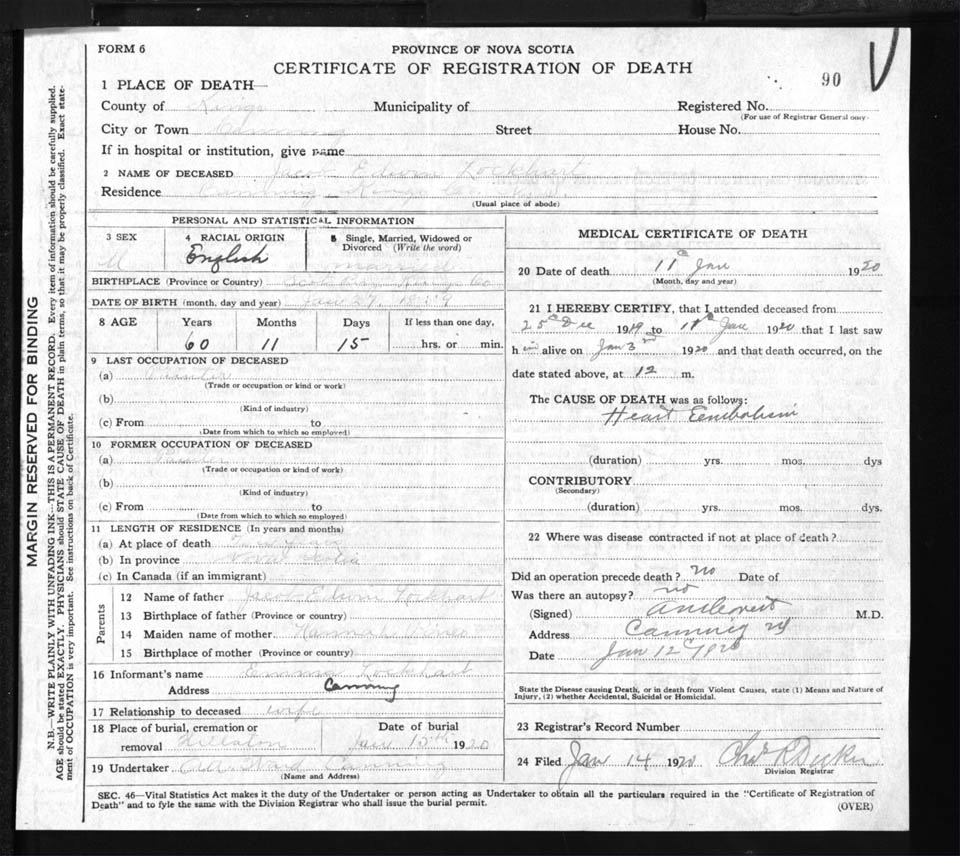 FORM 6
PROVINCE OF NOVA SCOTIA
CERTIFICATE OF REGISTRATION OF DEATH
90
1 PLACE OF DEATH—
County of Kings Municipality of Registered No.
(For use of Registrar General only.
City or Town Canning Street House No.
If in hospital or institution, give name
2 NAME OF DECEASED Jacob Edwin Lockhart
Residence Canning Kings Co
(Usual place of abode)
PERSONAL AND STATISTICAL INFORMATION
3 SEX 4 RACIAL ORIGIN 5 Single, Married, Widowed or Divorced (Write the word)
M English married
BIRTHPLACE (Province or Country) Kings Co
DATE OF BIRTH (month, day and year) Jan 27,
8 AGE Years Months Days If less than one day,
60 11 15 hrs. or min.
9 LAST OCCUPATION OF DECEASED
(a)
(Trade or occupation or kind or work)
(b)
(Kind of industry)
(c) From to
(Date from which to which so employed)
10 FORMER OCCUPATION OF DECEASED
(a)
(Trade or occupation or kind of work)
(b)
(Kind of industry)
(c) From to
(Date from which to which so employed)
11 LENGTH OF RESIDENCE (In years and months)
(a) At place of death
(b) In province Nova Scotia
(c) In Canada (if an immigrant)
Parents
12 Name of father Jacob Edwin Lockhart
13 Birthplace of father (Province or country)
14 Maiden name of mother
15 Birthplace of mother (Province or country)
16 Informant's name Emma Lockhart
Address Canning
17 Relationship to deceased wife
18 Place of burial, cremation or removal Hillaton
Date of burial Jan 15th 1920
19 Undertaker Ward Canning
(Name and Address)
MEDICAL CERTIFICATE OF DEATH
20 Date of death 11th Jan 1920
(Month, day and year)
21 I HEREBY CERTIFY, that I attended deceased from
25th Dec 1919 to 11th Jan 1920 that I last saw
h im alive on Jan 3rd 1920 and that death occurred, on the
date stated above, at 12 m.
The CAUSE OF DEATH was as follows:
Heart Eembolism
(duration) yrs. mos. dys
CONTRIBUTORY
(Secondary)
(duration) yrs. mos. dys.
22 Where was disease contracted if not at place of death?
Did an operation precede death? no Date of
Was there an autopsy? no
(Signed) M.D.
Address Canning NS
Date Jan 12th 1920
State the Disease causing Death, or in death from Violent Causes, state (1) Means and Nature of
Injury, (2) whether Accidental, Suicidal or Homicidal.
23 Registrar's Record Number
24 Filed Jan 14 1920 Chas R
Division Registrar
SEC. 46—Vital Statistics Act makes it the duty of the Undertaker or person acting as Undertaker to obtain all the particulars required in the "Certificate of Registration of
Death" and to fyle the same with the Division Registrar who shall issue the burial permit.
(OVER)
MARGIN RESERVED FOR BINDING
N.B.—WRITE PLAINLY WITH UNFADING INK—THIS IS A PERMANENT RECORD. Every item of information should be carefully supplied.
AGE should be stated EXACTLY. PHYSICIANS should STATE CAUSE OF DEATH in plain terms, so that it may be properly classified. Exact state-
ment of OCCUPATION is very important. See instructions on back of Certificate.